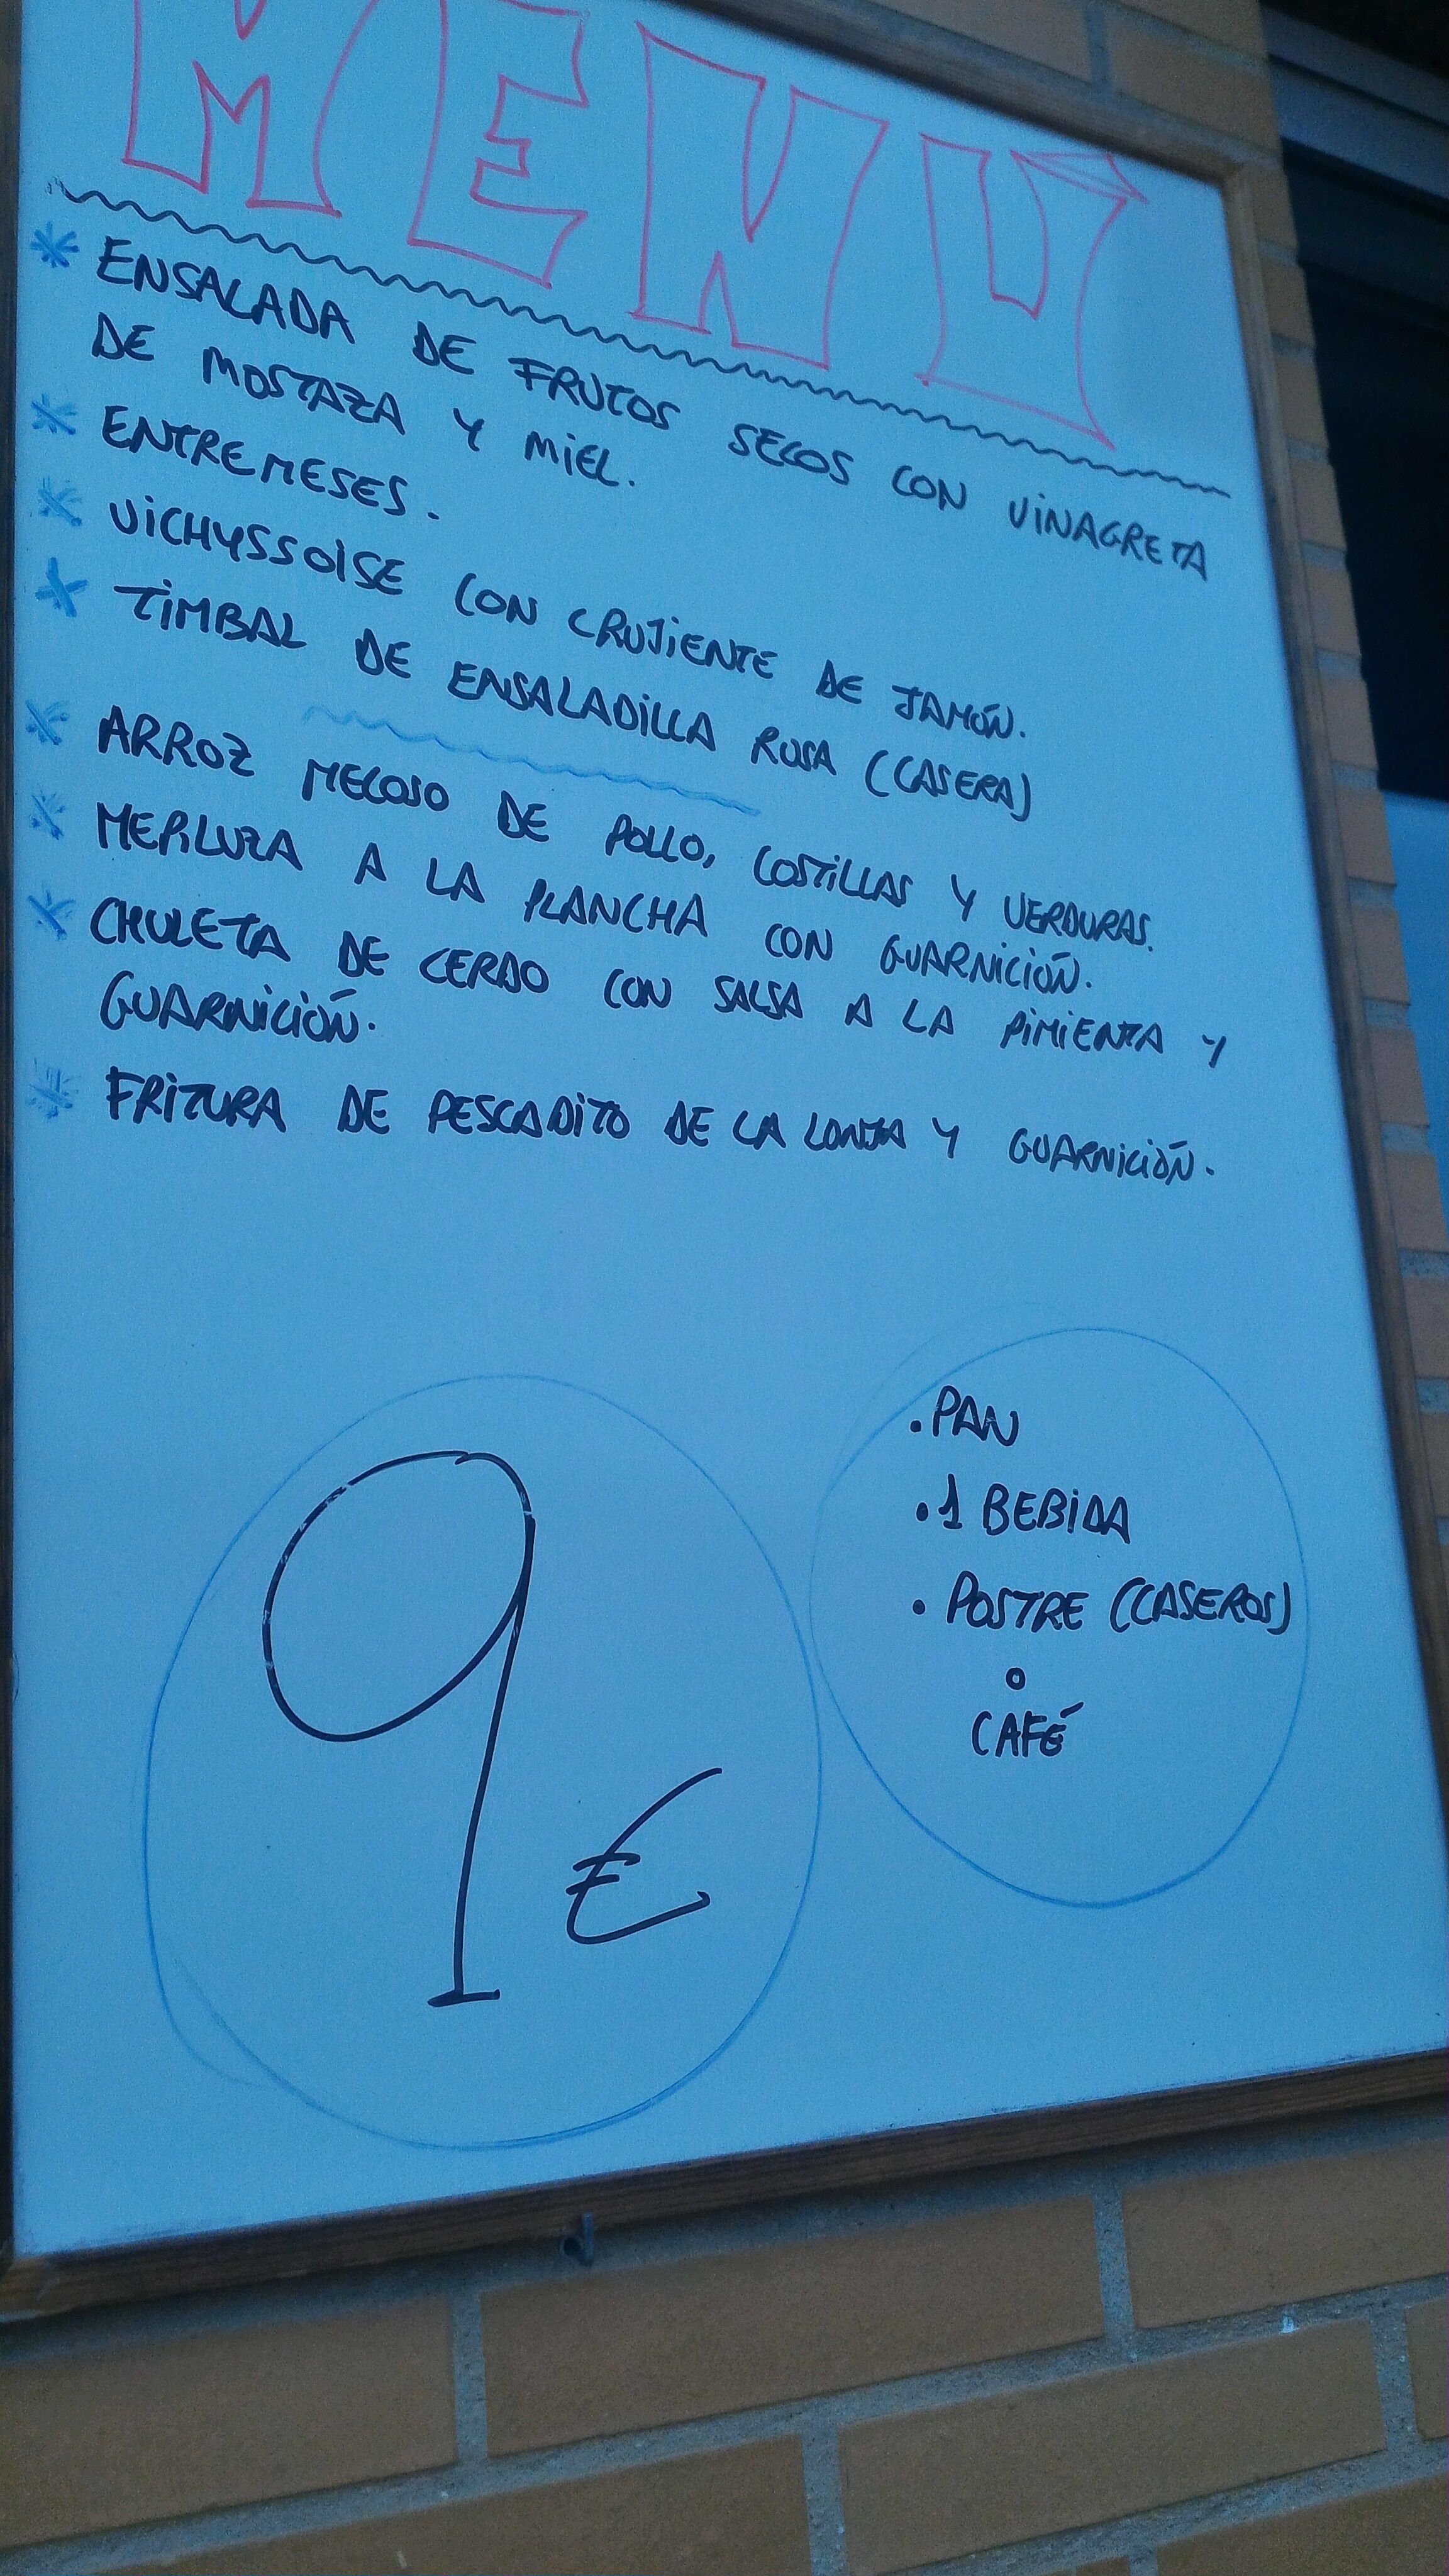 MENÚ
* ENSALADA DE FRUTOS SECOS CON VINAGRETA
DE MOSTAZA Y MIEL.
* ENTREMESES.
* VICHYSSOISE CON CRUJIENTE DE JAMÓN.
* TIMBAL DE ENSALADILLA RUSA (CASERA)
* ARROZ MELOSO DE POLLO, COSTILLAS Y VERDURAS.
* MERLUZA A LA PLANCHA CON GUARNICIÓN.
* CHULETA DE CERDO CON SALSA A LA PIMIENTA Y
GUARNICIÓN.
* FRITURA DE PESCADITO DE LA LONJA Y GUARNICIÓN.
9 €
. PAN
. 1 BEBIDA
. POSTRE (CASEROS)
o
CAFÉ